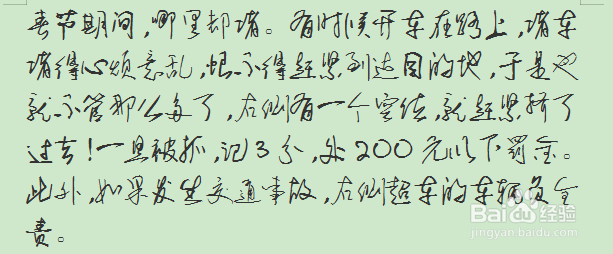 春节期间，哪里都堵。有时候开车在路上，堵车
堵得心烦意乱，恨不得赶紧到达目的地，于是也
就不管那么多了，右侧有一个空位，就赶紧挤了
过去！一旦被抓，记3分，处200元以下罚金。
此外，如果发生交通事故，右侧超车的车辆负全
责。
Baidu经验
jingyan.baidu.com